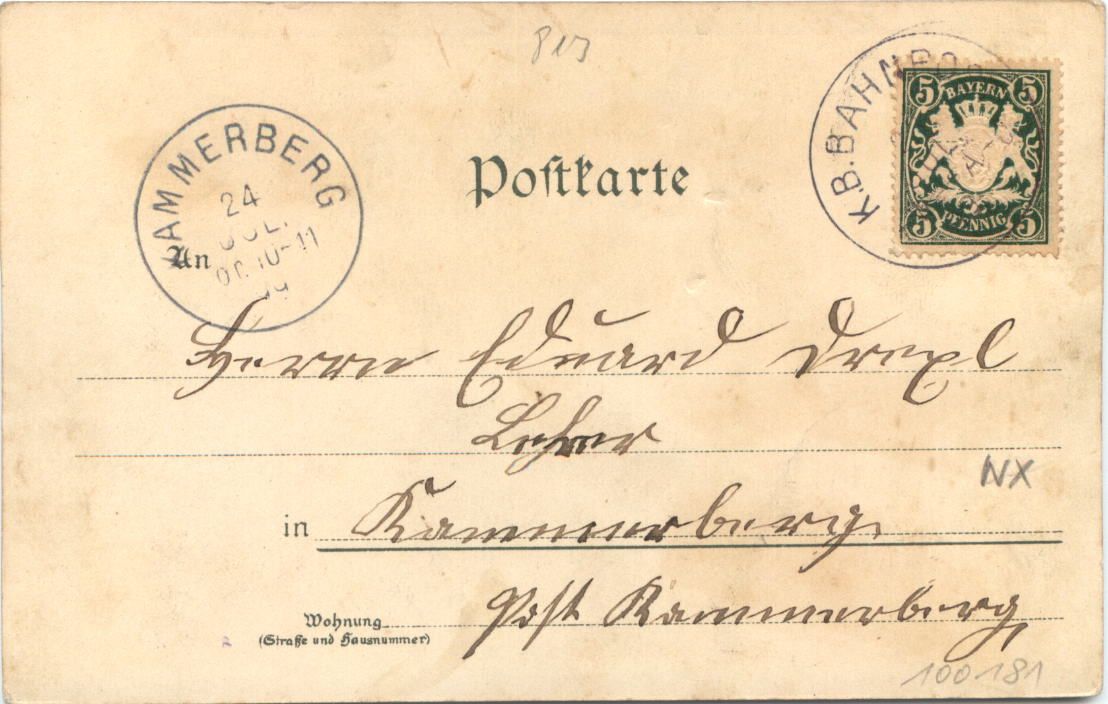 813
K.B.BAHNPOS
5 BAYERN 5
5 PFENNIG 5
KAMMERBERG
24
JUL.
10-11
99
Postkarte
An
Herrn Eduard Drexl
Lehrer
NX
in Kammerberg.
Post Kammerberg,
Wohnung
(Straße und Hausnummer)
100181